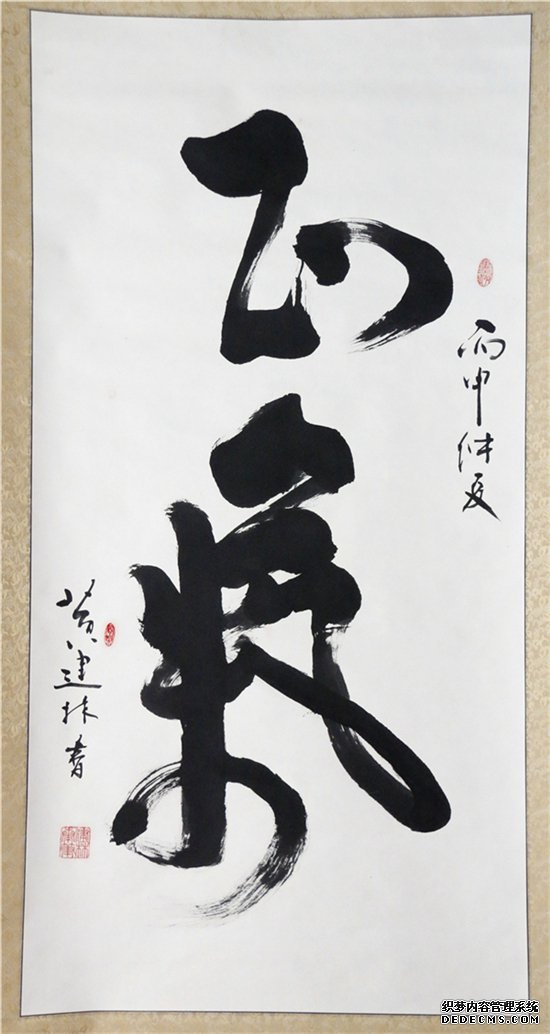 正氣
丙申仲夏
建林書
织梦内容管理系统
DEDECMS.COM